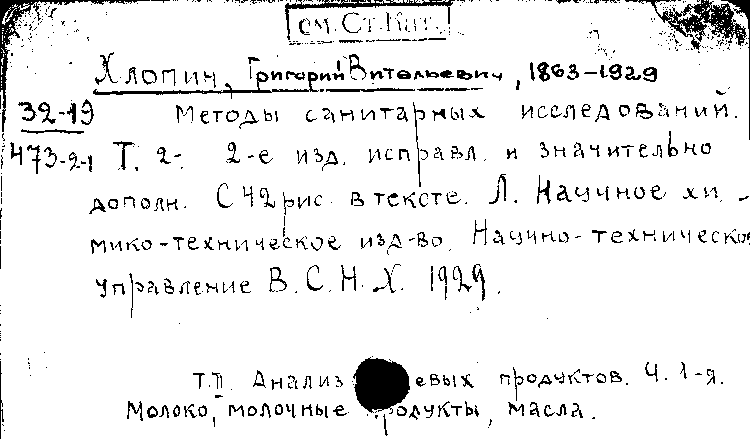 см. Ст. Кат.
Хлопин, Григорий Витальевич, 1863-1929
32-19 Методы санитарных исследований.
473-2-1 Т. 2- 2-е изд. исправл. и значительно
дополн. С 42 рис. в тексте. Л. Научное хи-
мико-техническое изд-во. Научно-техническое
управление В.С.Н.Х. 1929.
Т.II. Анализ евых продуктов. Ч. 1-я.
Молоко, молочные одукты, масла.